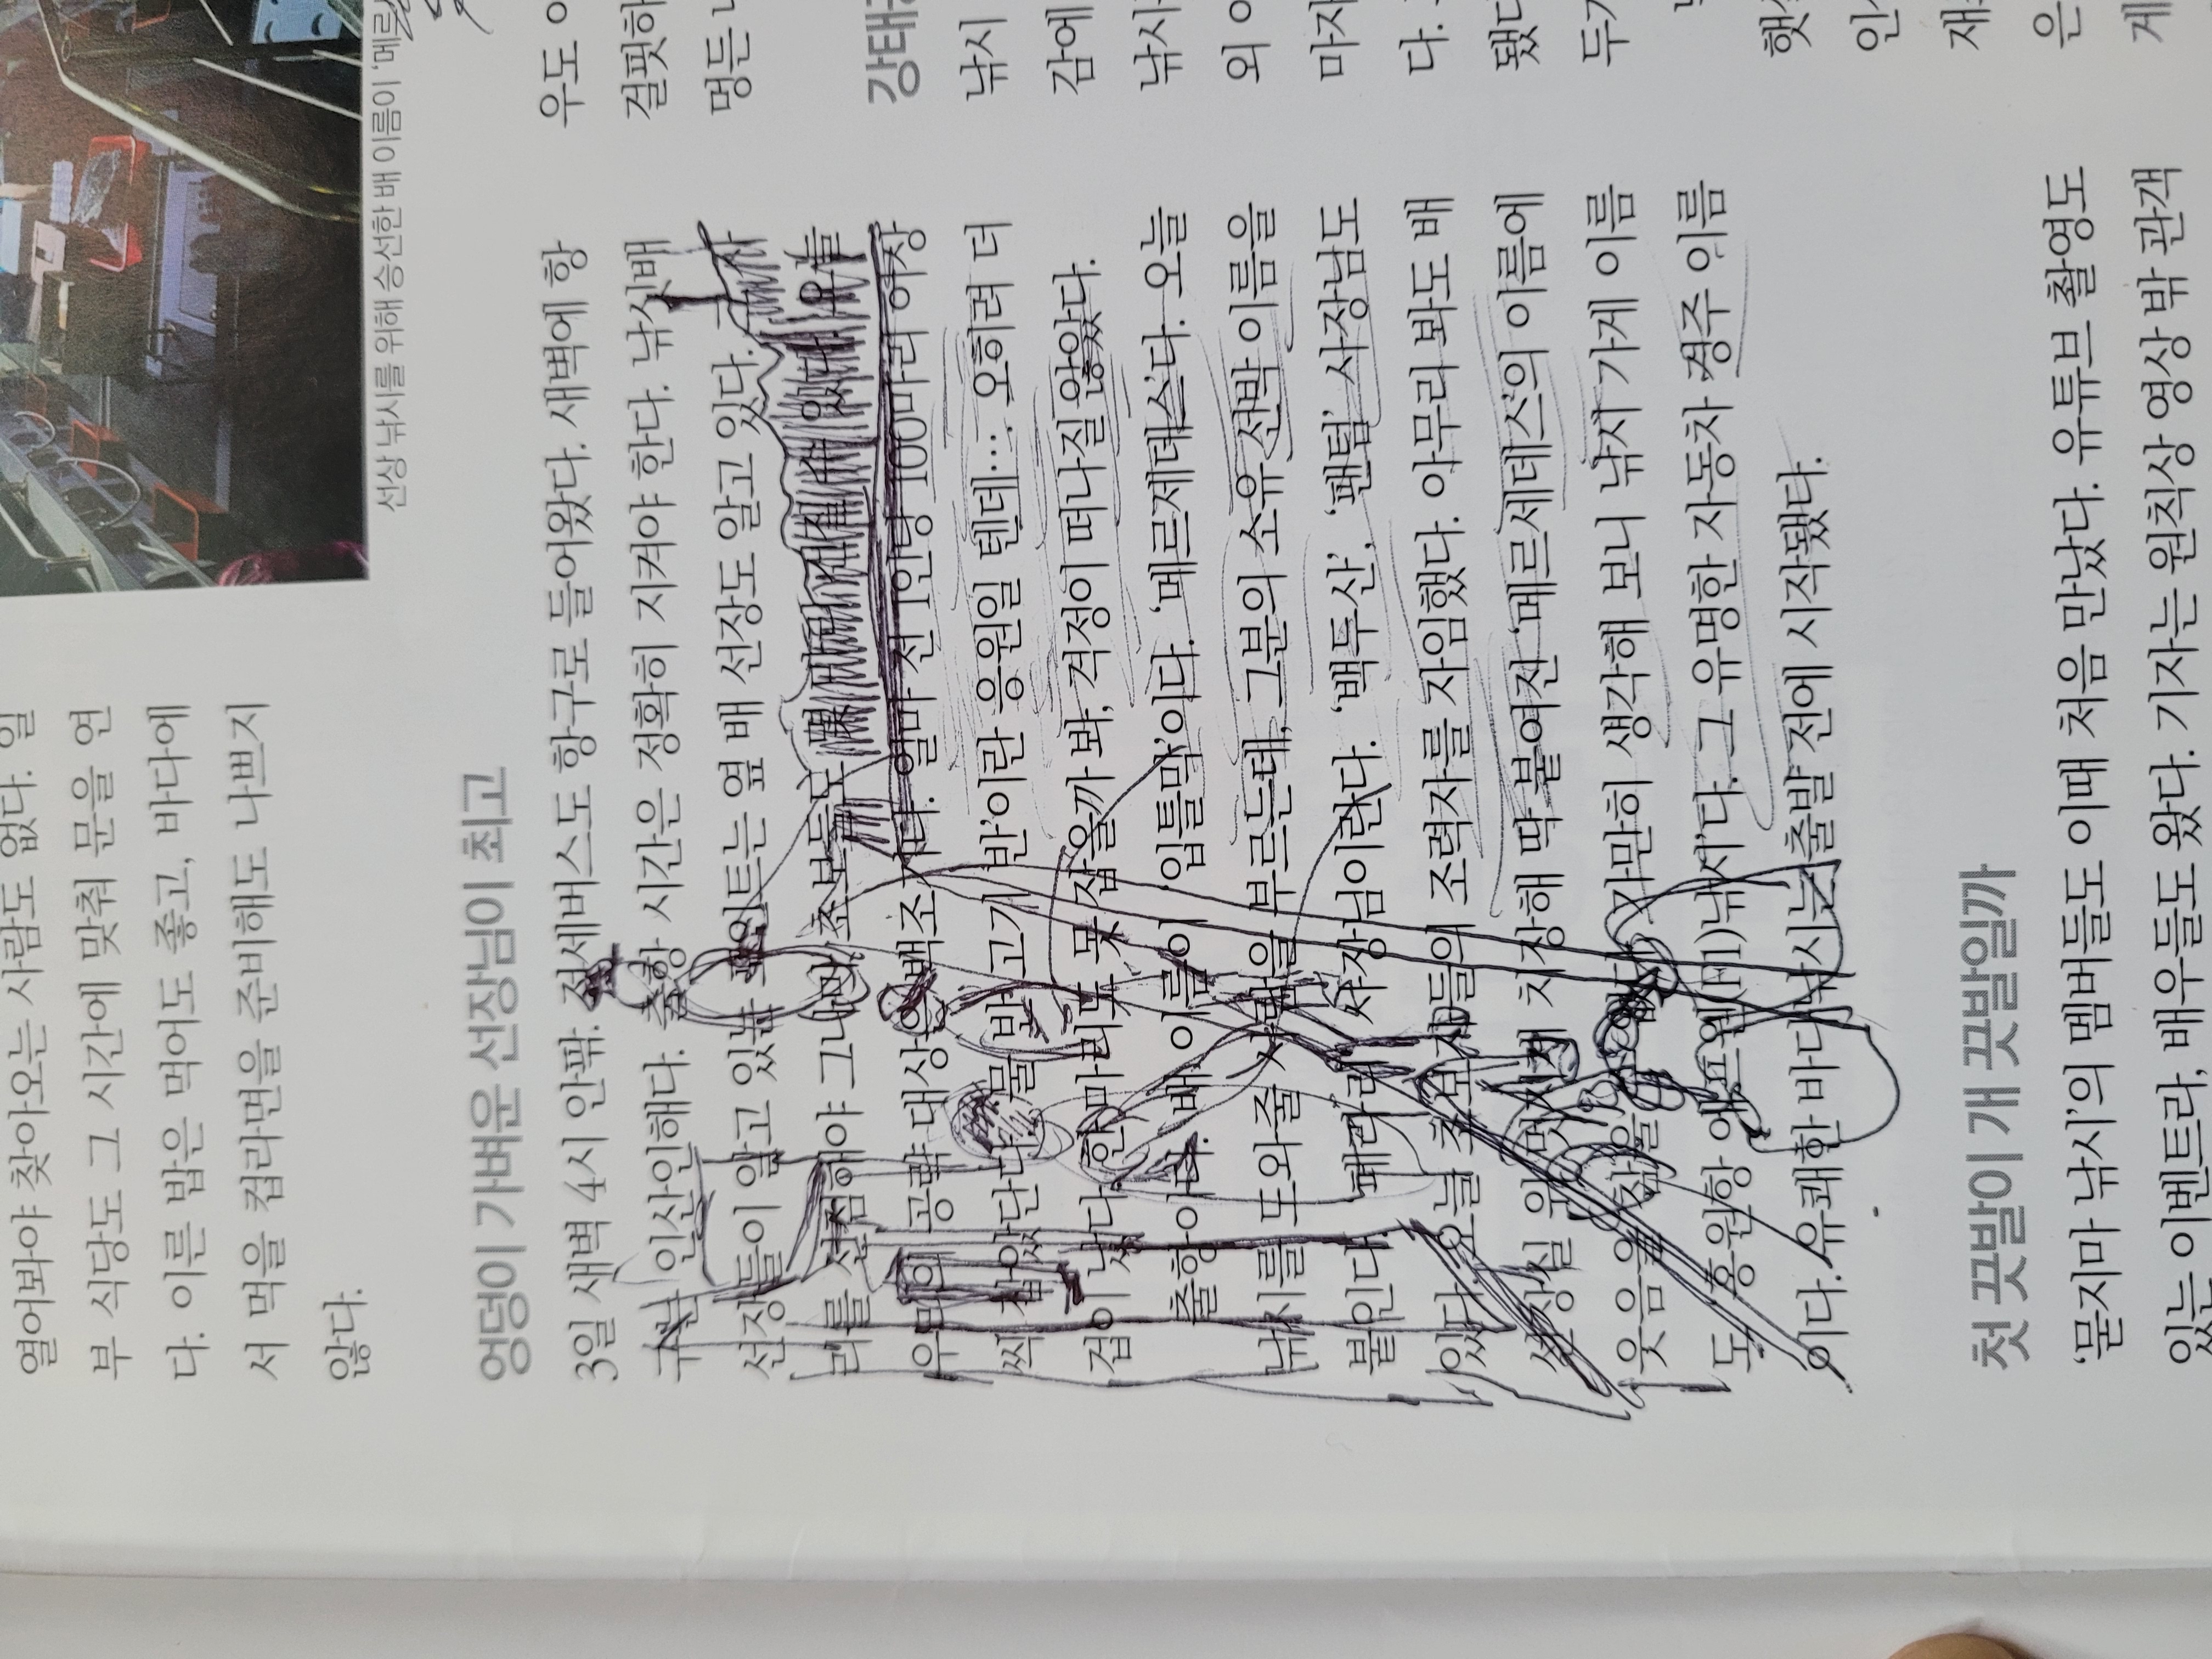 열어봐야 찾아오는 사람도 없다. 일
부 식당도 그 시간에 맞춰 문을 연
다. 이른 밥은 먹어도 좋고, 바다에
서 먹을 컵라면을 준비해도 나쁘지
않다.
선상 낚시를 위해 승선한 배 이름이 '메르
엉덩이 가벼운 선장님이 최고
3일 새벽 4시 안팎. 전세버스도 항구로 들어왔다. 새벽에 항
구란 인산인해다. 출항 시간은 정확히 지켜야 한다. 낚싯배
선장들이 알고 있는 포인트는 옆 배 선장도 알고 있다.
리를 선점해야 그나마 초보들도 오늘
우리의 공략 대상은 백조 얼마 전 1인당 100마리 이상
씩 잡았단다. '물 반 고기 반'이란 응원일 텐데…. 오히려 더
겁이 났다. 한 마리도 못 잡을까 봐, 걱정이 떠나질 않았다.
출항이다. 배 이름이 '입틀막'이다. '메르제데스'다. 오늘
낚시를 도와줄 사람을 부르는데, 그분의 소유 선박 이름을
붙인다. '페라리' 사장님이란다. '백두산', '팬텀' 사장님도
있다. 오늘 초보자들의 조력자를 자임했다. 아무리 봐도 배
선장실 위 멋지게 치장해 딱 붙여진 '메르세데스'의 이름에
웃음을 참을 수 없다. 가만히 생각해 보니 낚시 가게 이름
도 '홍원항 에프원(F1)낚시'다. 그 유명한 자동차 경주 이름
이다. 유쾌한 바다낚시는 출발 전에 시작됐다.
첫 끗발이 개 끗발일까
'묻지마 낚시'의 멤버들도 이때 처음 만났다. 유튜브 촬영도
있는 이벤트라, 배우들도 왔다. 기자는 원칙상 영상 밖 관객
우도 이
걸핏하
멍든
강태
낚시
감에
낚시
외 이
마지
다.
됐다
두
햇
인
재
은
게